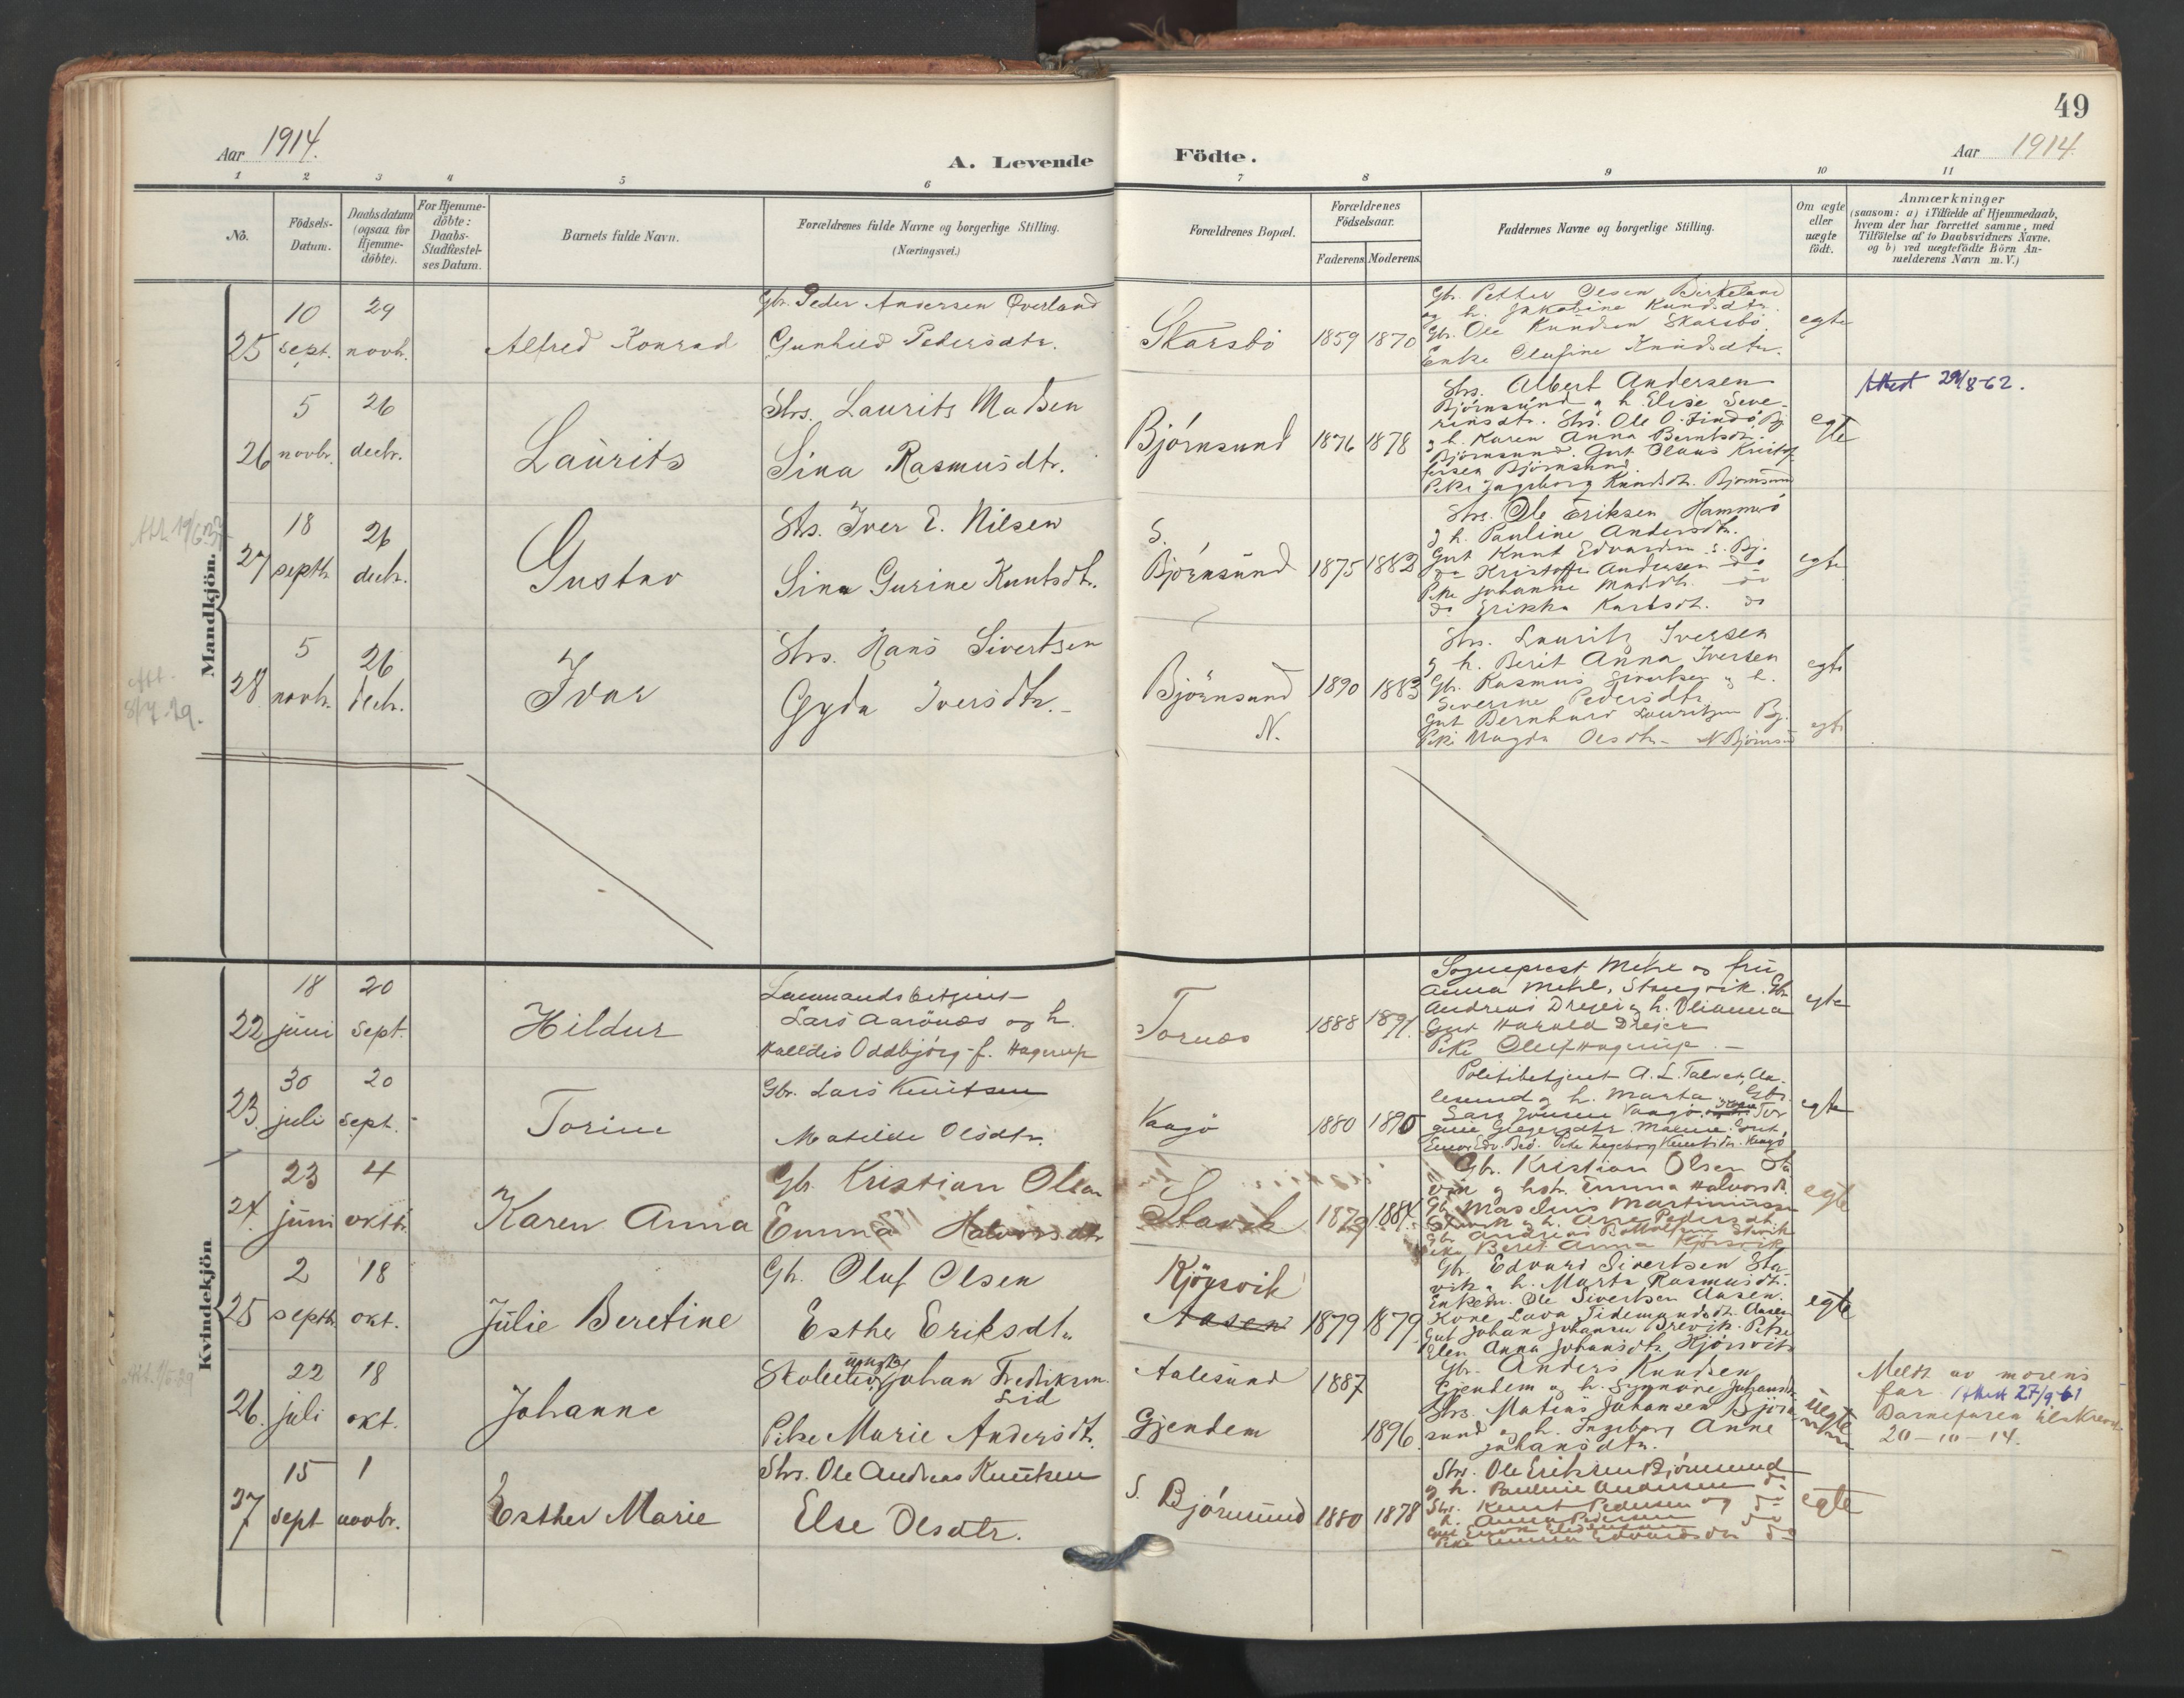 49
Aar 1914.
A. Levende Födte.
Aar 1914.
1 2 3 4 5 6 7 8 9 10 11
No.
Födsels-
Datum.
Daabsdatum
(ogsaa for
Hjemme-
döbte).
For Hjemme-
döbte:
Daabs-
Stadfæstel-
ses Datum.
Barnets fulde Navn.
Forældrenes fulde Navne og borgerlige Stilling.
(Næringsvei.)
Forældrenes Bopæl.
Forældrenes
Födselsaar.
Faderens. Moderens.
Faddernes Navne og borgerlige Stilling.
Om ægte
eller
uægte
födt.
Anmærkninger
(saasom: a) i Tilfælde af Hjemmedaab,
hvem der har forrettet samme, med
Tilföielse af to Daabsvidners Navne,
og b) ved uægtefödte Börn An-
melderens Navn m. V.)
Mandkjön.
25
10
sept.
29
novb.
Alfred Konrad
Gbr. Peder Andersen Överland
Gunhild Pedersdtr.
Skarsbö
1859 1870
Gbr. Petter Olsen Birkeland
og h. Jakobine Knudsdtr.
Gbr. Ole Knudsen Skarsbö.
Enke Olufine Knudsdtr.
egte
26
5
novbr.
26
decbr.
Laurits
Strs. Laurits Madsen
Sina Rasmusdtr.
Björnsund
1876 1878
Strs. Albert Andersen
Björnsund og h. Elise Seve-
rinsdtr. Strs. Ole O. Bj.
og h. Karen Anna Berntsdtr.
Björnsund. Gut Olaus Kristof-
fersen Björnsund.
Pike Ingeborg Knudsdtr. Björnsund
egte
Attest 29/8-62.
27
18
septbr.
26
decbr.
Gustav
Strs. Iver E. Nilsen
Sina Gurine Knutsdtr.
S.
Björnsund
1875 1882
Strs. Ole Eriksen Hammerö
og h. Pauline Andersdtr.
Gut Knut Edvardsen S. Bj.
do Kristoffer Andersen do
Pike Johanne Madsdtr. do
do Erikka Karlsdtr. do
egte
28
5
novbr.
26
decbr.
Ivar
Strs. Hans Sivertsen
Gyda Iversdtr.
Björnsund
N.
1890 1883
Strs. Laurits Iversen
og h. Berit Anna Iversen
Gbr. Rasmus Sivertsen og h.
Severine Pedersdtr.
Gut Bernhard Lauritsen Bj.
Pike Magda Olsdtr. N. Björnsund
egte
egte
8/7-29.
Kvindekjön
22
18
juni
20
sept.
Hildur
Lensmandsbetjent
Lars Aarönæs og h.
Halldis Oddbjörg f. Hagerup
Tornæs
1888 1891.
Sogneprest Mehl og fru
Anna Mehl, Stangvik. Gbr.
Andreas Dreier og h. Olianna
Gut Harald Dreier
Pike Oluf Hagerup.
egte
23.
30
juli
20
sept.
Torine
Gbr. Lars Knutsen
Matilde Olsdtr.
Vaagö
1880 1890
Politibetjent A. L. Aa-
lesund og h. Marta. Gbr.
egte
24.
23
juni
4
oktbr.
Karen Anna
Gbr. Kristian Olsen
Emma Halvorsdtr.
Stavik
1879 1884.
Gbr. Kristian Olsen Sta-
vik og hstr. Emma Halvorsdtr.
Gbr. Maselius Martinussen
Stavik og h. Ane Pedersdtr.
Pike Beret Anna Kjörsvik
egte
25
2
septbr.
18
okt.
Julie Beretine
Gbr. Oluf Olsen
Esther Eriksdtr.
Kjörsvik
Aasen
1879 1879
Gbr. Edvard Sivertsen Sta-
vik og h. Marta Rasmusdtr.
Enkem. Ole Sivertsen Aasen.
Kone Lava Tidemandsdtr. Aasen
Gut Johan Johansen Brevik. Pike
Elen Anna Johansdtr. Kjörsvik
egte
26.
22
juli
18
okt.
Johanne
ungk.
Skolelev Johan Fredriksen
Lid
Pike Marie Andersdtr.
Aalesund
Gjendem
1887
1896.
Gbr. Anders Knudsen
Gjendem og h. Synnöve Johansdtr.
Strs. Matias Johansen Björn-
sund og h. Ingeborg Anne
Johansdtr.
uegte
Meldt av morens
far. Attest 27/9-61
Barnefaren tilskrevet
20-10-14.
27
15
sept
1
novbr.
Esther Marie
Strs. Ole Andreas Knutsen
Else Olsdtr.
S. Björnsund
1880 1878
Strs. Ole Eriksen Björnsund
og h. Pauline Andersen do
Strs. Knut Pedersen og do
h. Anna Pedersen do
Pike Emma Edvardsdtr. do
egte